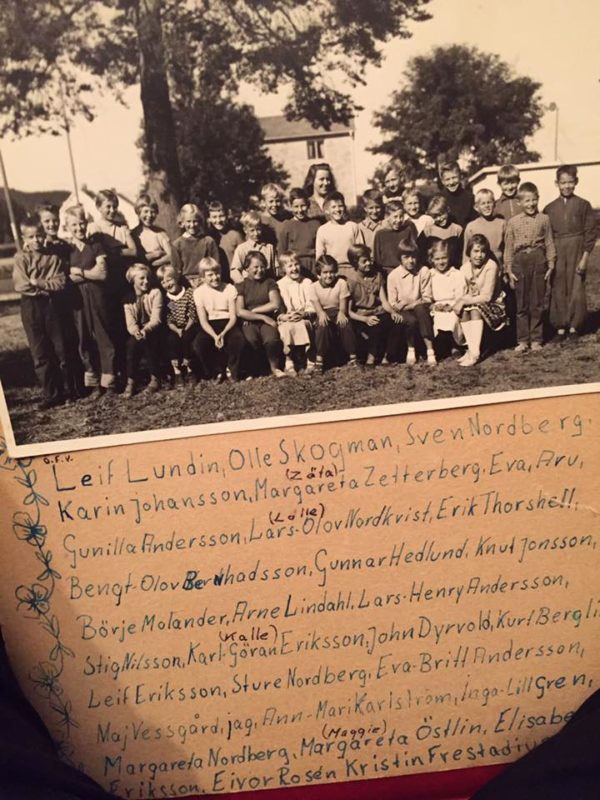 Ö.F.V.
Leif Lundin, Olle Skogman, Sven Nordberg,
(Zäta)
Karin Johansson, Margareta Zetterberg, Eva, Arv,
(Lålle)
Gunilla Andersson, Lars-Olov Nordkvist, Erik Thorshell,
Bengt-Olov Bernhadsson, Gunnar Hedlund, Knut Jonsson,
Börje Molander, Arne Lindahl, Lars-Henry Andersson,
(Kalle)
Stig Nilsson, Karl-Göran Eriksson, John Dyrvold, Kurt
Leif Eriksson, Sture Nordberg, Eva-Britt Andersson,
Maj Vessgård, jag, Ann-Mari Karlström, Inga-Lill Gren,
(Maggie)
Margareta Nordberg, Margareta Östlin,
Eriksson, Eivor Rosén Kristin